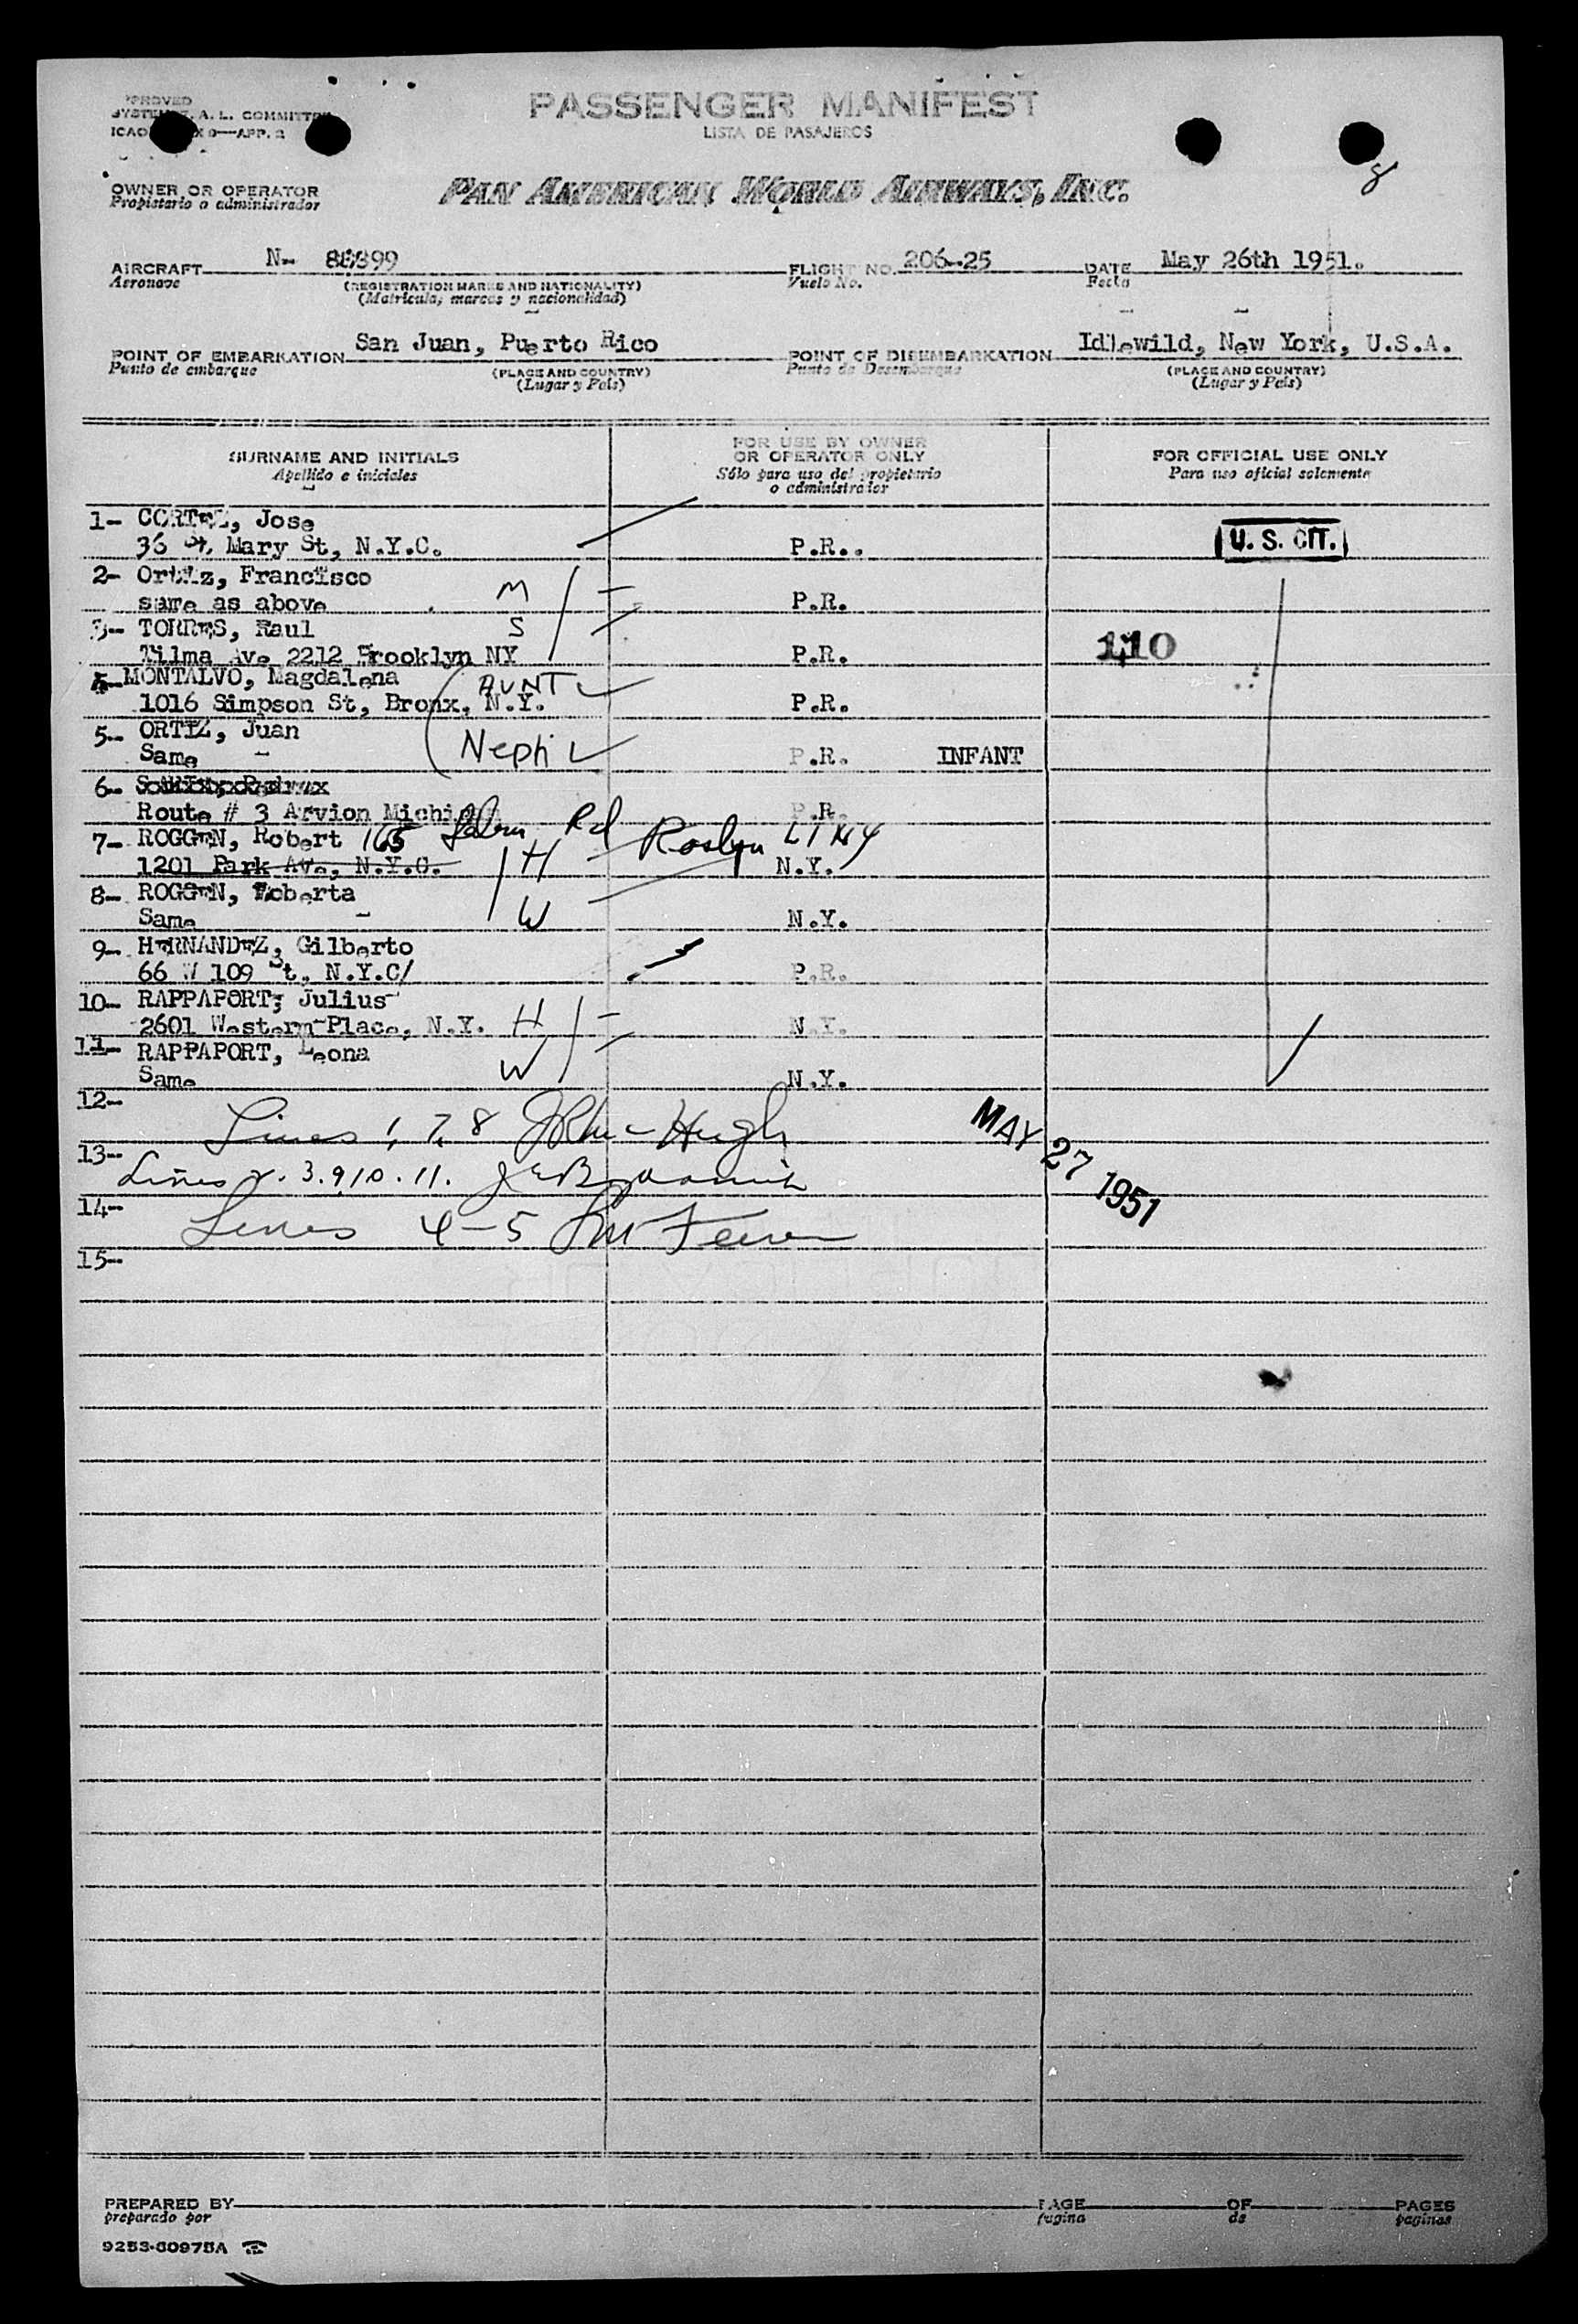 PASSENGER MANIFEST
LISTA DE PASAJEROS
A. L. COMMITTEE
ICAO 9—APP. 2
OWNER OR OPERATOR
Propietario o administrador
PAN AMERICAN WORLD AIRWAYS, INC.
AIRCRAFT N- 88899 FLIGHT NO. 206-25 DATE May 26th 1951.
Aeronave (REGISTRATION MARKS AND NATIONALITY) Vuelo No. Fecha
(Matricula, marcas y nacionalidad)
POINT OF EMBARKATION San Juan, Puerto Rico POINT OF DISEMBARKATION Idlewild, New York, U.S.A.
Punto de embarque (PLACE AND COUNTRY) Punto de Desembarque (PLACE AND COUNTRY)
(Lugar y País) (Lugar y País)
SURNAME AND INITIALS FOR USE BY OWNER OR OPERATOR ONLY FOR OFFICIAL USE ONLY
Apellido e iniciales Sólo para uso del propietario o administrador Para uso oficial solamente
1- CORTEZ, Jose
36 St. Mary St, N.Y.C. P.R.. U. S. CIT.
2- Ortiz, Francisco
same as above M P.R.
3- TORRES, Raul S
Ave 2212 Brooklyn NY P.R. 110
MONTALVO, Magdalena AUNT
1016 Simpson St, Bronx, N.Y. P.R.
5- ORTIZ, Juan
Same Neph P.R. INFANT
6-
Route # 3 Arvion Michigan P.R.
7- ROGGEN, Robert 165 Rd Roslyn LI NY
1201 Park Ave, N.Y.C. H N.Y.
8- ROGGEN, Roberta
Same W N.Y.
9- HERNANDEZ, Gilberto
66 W 109 St, N.Y.C/ P.R.
10- RAPPAPORT, Julius
2601 Western Place, N.Y. H N.Y.
11- RAPPAPORT, Leona
Same W N.Y.
12-
Lines 1, 7, 8
MAY 27 1951
13-
Lines 2. 3. 9 10. 11.
14-
Lines 4-5
15-
PREPARED BY PAGE OF PAGES
preparado por pagina de paginas
9253-60975A